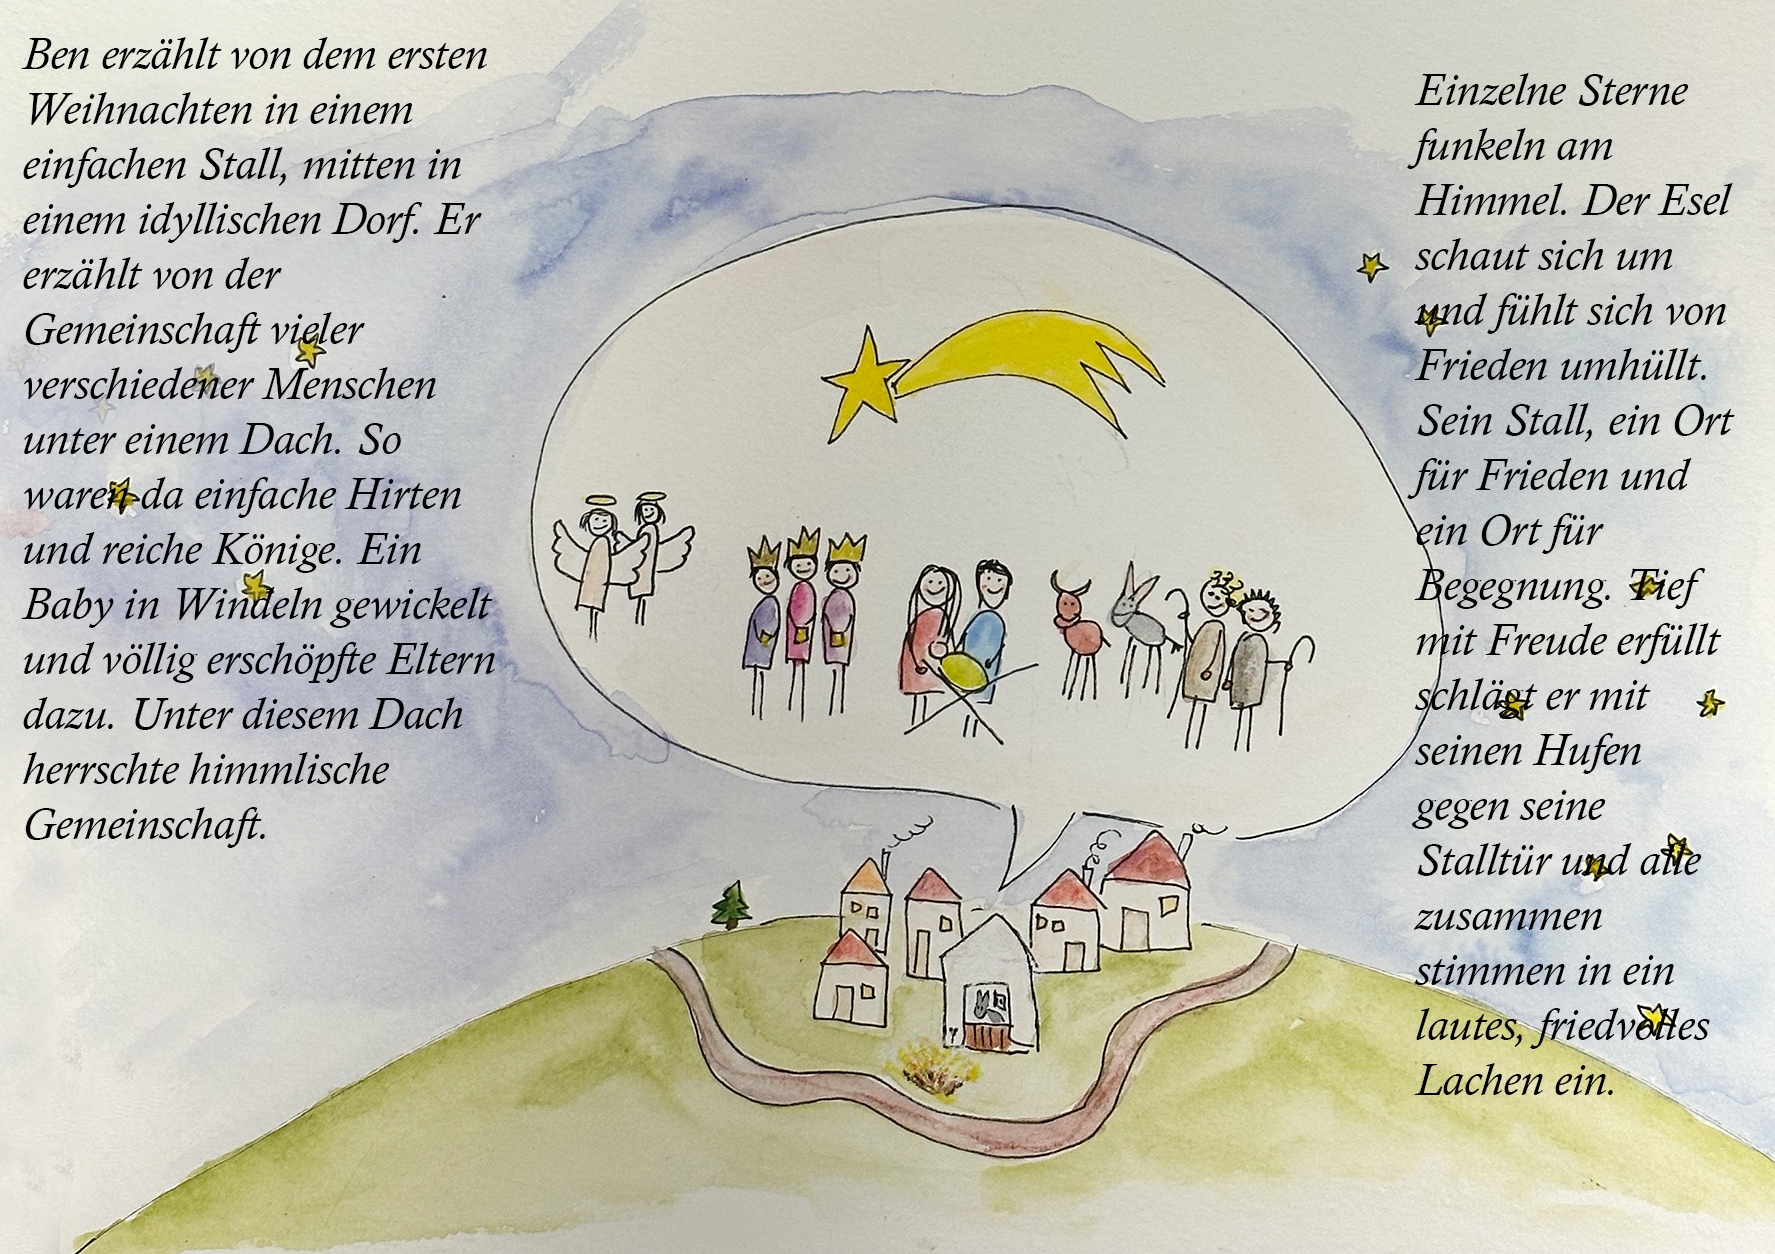 Ben erzählt von dem ersten
Weihnachten in einem
einfachen Stall, mitten in
einem idyllischen Dorf. Er
erzählt von der
Gemeinschaft vieler
verschiedener Menschen
unter einem Dach. So
waren da einfache Hirten
und reiche Könige. Ein
Baby in Windeln gewickelt
und völlig erschöpfte Eltern
dazu. Unter diesem Dach
herrschte himmlische
Gemeinschaft.
Einzelne Sterne
funkeln am
Himmel. Der Esel
schaut sich um
und fühlt sich von
Frieden umhüllt.
Sein Stall, ein Ort
für Frieden und
ein Ort für
Begegnung. Tief
mit Freude erfüllt
schlägt er mit
seinen Hufen
gegen seine
Stalltür und alle
zusammen
stimmen in ein
lautes, friedvolles
Lachen ein.